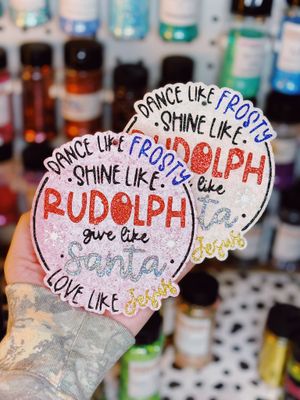 DANCE LIKE FROSTY
SHINE LIKE
RUDOLPH
give like
Santa
LOVE LIKE Jesus
DANCE LIKE FROSTY
SHINE LIKE
RUDOLPH
like
Santa
Jesus